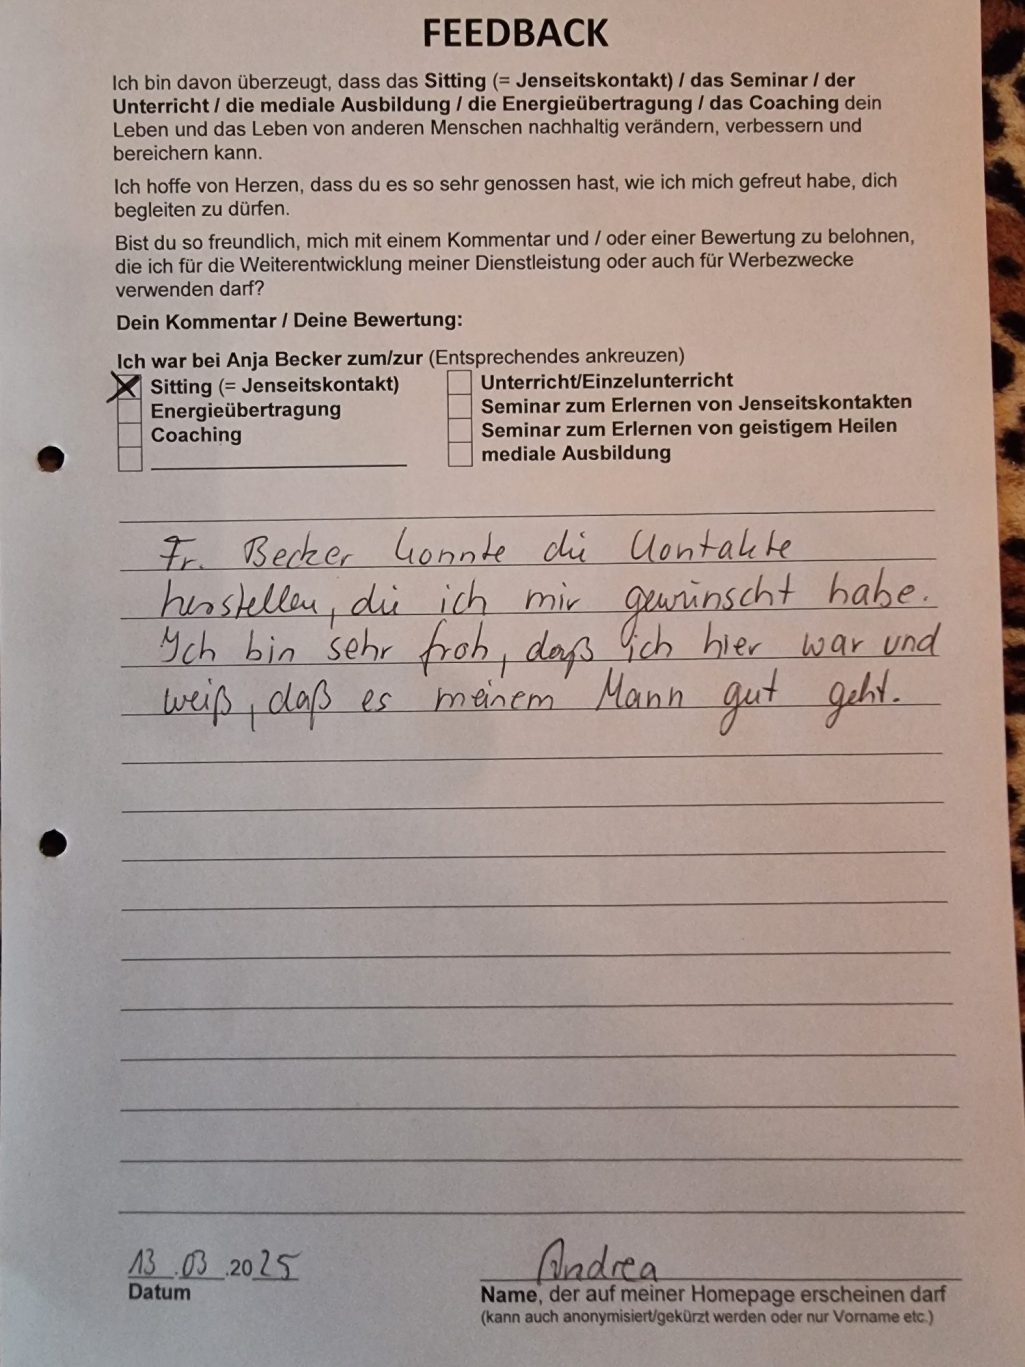 FEEDBACK
Ich bin davon überzeugt, dass das Sitting (= Jenseitskontakt) / das Seminar / der
Unterricht / die mediale Ausbildung / die Energieübertragung / das Coaching dein
Leben und das Leben von anderen Menschen nachhaltig verändern, verbessern und
bereichern kann.
Ich hoffe von Herzen, dass du es so sehr genossen hast, wie ich mich gefreut habe, dich
begleiten zu dürfen.
Bist du so freundlich, mich mit einem Kommentar und / oder einer Bewertung zu belohnen,
die ich für die Weiterentwicklung meiner Dienstleistung oder auch für Werbezwecke
verwenden darf?
Dein Kommentar / Deine Bewertung:
Ich war bei Anja Becker zum/zur (Entsprechendes ankreuzen)
Sitting (= Jenseitskontakt)
Energieübertragung
Coaching
Unterricht/Einzelunterricht
Seminar zum Erlernen von Jenseitskontakten
Seminar zum Erlernen von geistigem Heilen
mediale Ausbildung
Fr. Becker konnte die Kontakte
herstellen, die ich mir gewünscht habe.
Ich bin sehr froh, daß ich hier war und
weiß, daß es meinem Mann gut geht.
13.03.2025
Datum
Andrea
Name, der auf meiner Homepage erscheinen darf
(kann auch anonymisiert/gekürzt werden oder nur Vorname etc.)